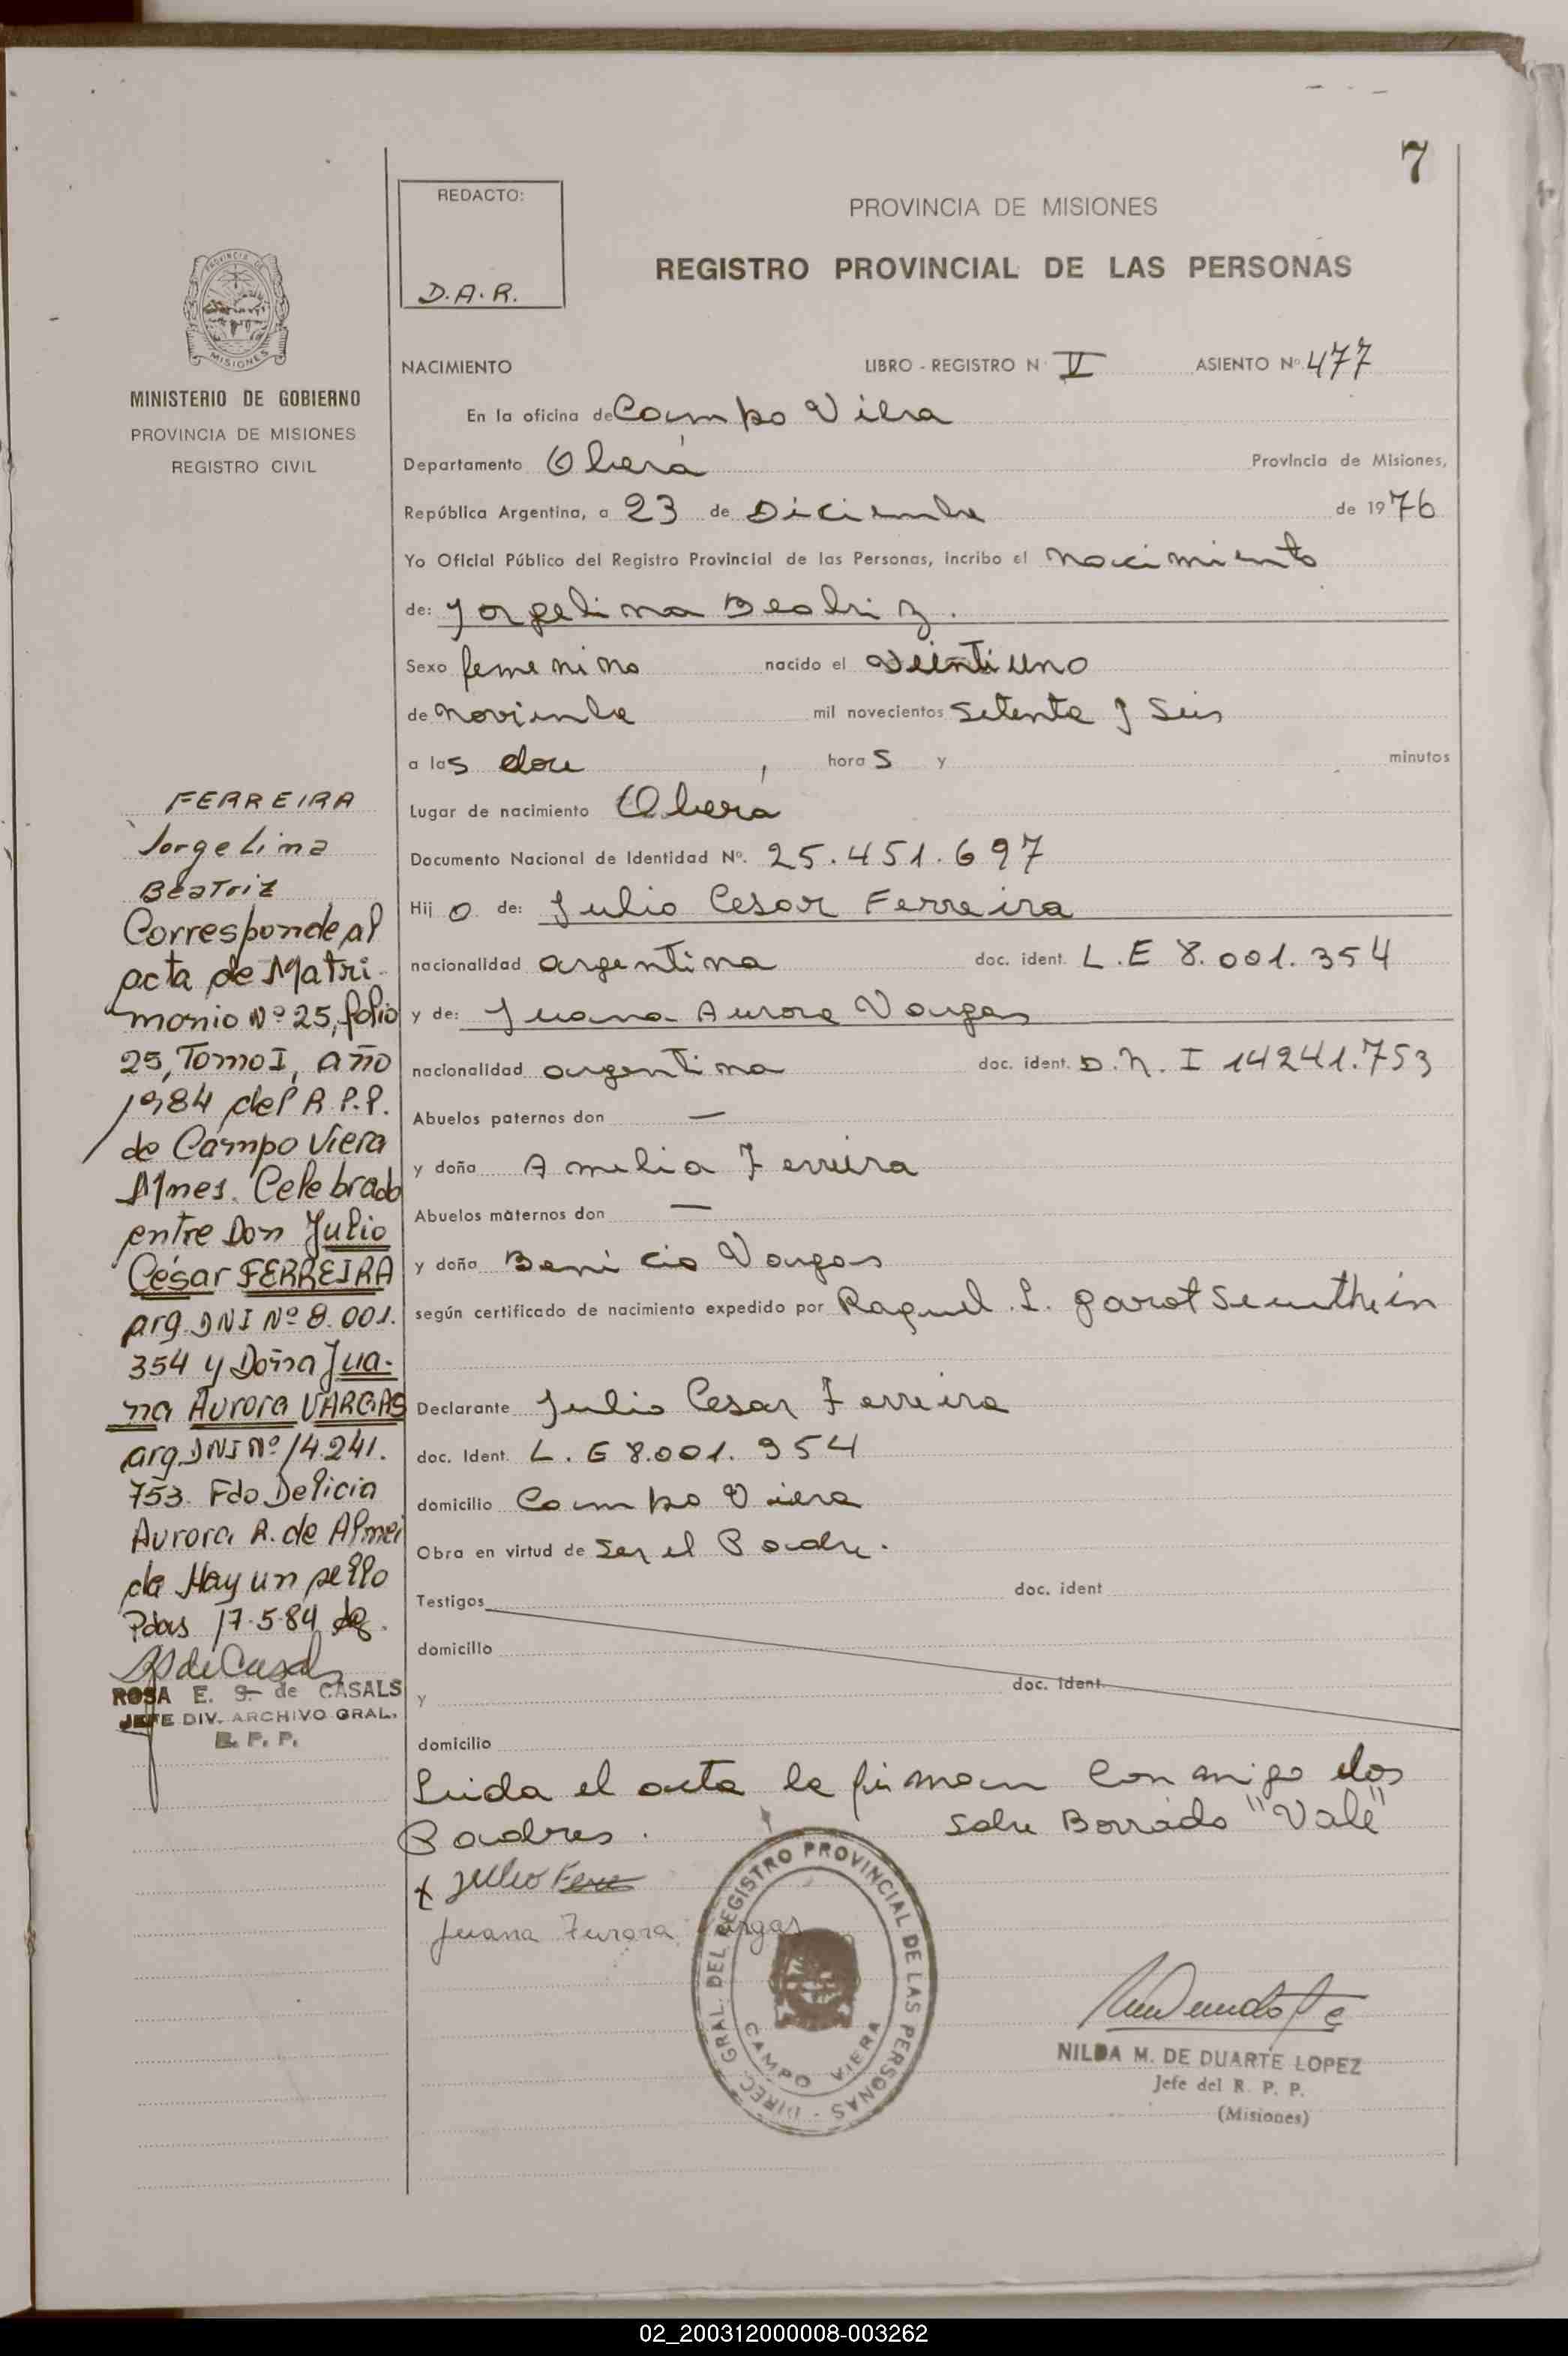 7
REDACTO:
D.A.R.
PROVINCIA DE MISIONES
REGISTRO PROVINCIAL DE LAS PERSONAS
PROVINCIA DE
MISIONES
MINISTERIO DE GOBIERNO
PROVINCIA DE MISIONES
REGISTRO CIVIL
NACIMIENTO LIBRO - REGISTRO N· V ASIENTO Nº 477
En la oficina de Campo Viera
Departamento Oberá Provincia de Misiones,
República Argentina, a 23 de Diciembre de 1976
Yo Oficial Público del Registro Provincial de las Personas, incribo el nacimiento
de: Jorgelina Beatriz.
Sexo femenino nacido el Veintiuno
de noviembre mil novecientos Setenta y Seis
a las doce, horas y minutos
Lugar de nacimiento Oberá
Documento Nacional de Identidad Nº. 25.451.697
Hijo de: Julio Cesar Ferreira
nacionalidad argentina doc. ident. L.E 8.001.354
y de: Juana Aurora Vargas
nacionalidad argentina doc. ident. D.N.I 14241.753
Abuelos paternos don —
y doña Amelia Ferreira
Abuelos maternos don —
y doña Benicia Vargas
según certificado de nacimiento expedido por Raquel. L.
Declarante Julio Cesar Ferreira
doc. Ident. L.E 8.001.354
domicilio Campo Viera
Obra en virtud de Ser el Padre.
Testigos doc. ident
domicilio
y doc. ident.
domicilio
Leida el acta la firman conmigo los
Padres. Sobre Borrado "Vale"
x Julio
Juana Aurora Vargas
DIREC. GRAL. DEL REGISTRO PROVINCIAL DE LAS PERSONAS -
CAMPO VIERA
NILDA M. DE DUARTE LOPEZ
Jefe del R. P. P.
(Misiones)
FERREIRA
Jorgelina
Beatriz
Corresponde al
acta de Matri-
monio Nº 25, folio
25, Tomo I, año
1984 del R.P.P.
de Campo Viera
Mnes. Celebrado
entre Don Julio
César FERREIRA
arg. DNI Nº 8.001.
354 y Doña Jua-
na Aurora VARGAS
arg DNI Nº 14.241.
753. Fdo Delicia
Aurora R. de Almei
da Hay un sello
Pdas 17.5.84
ROSA E. S. de CASALS
JEFE DIV. ARCHIVO GRAL.
R. P. P.
02_200312000008-003262